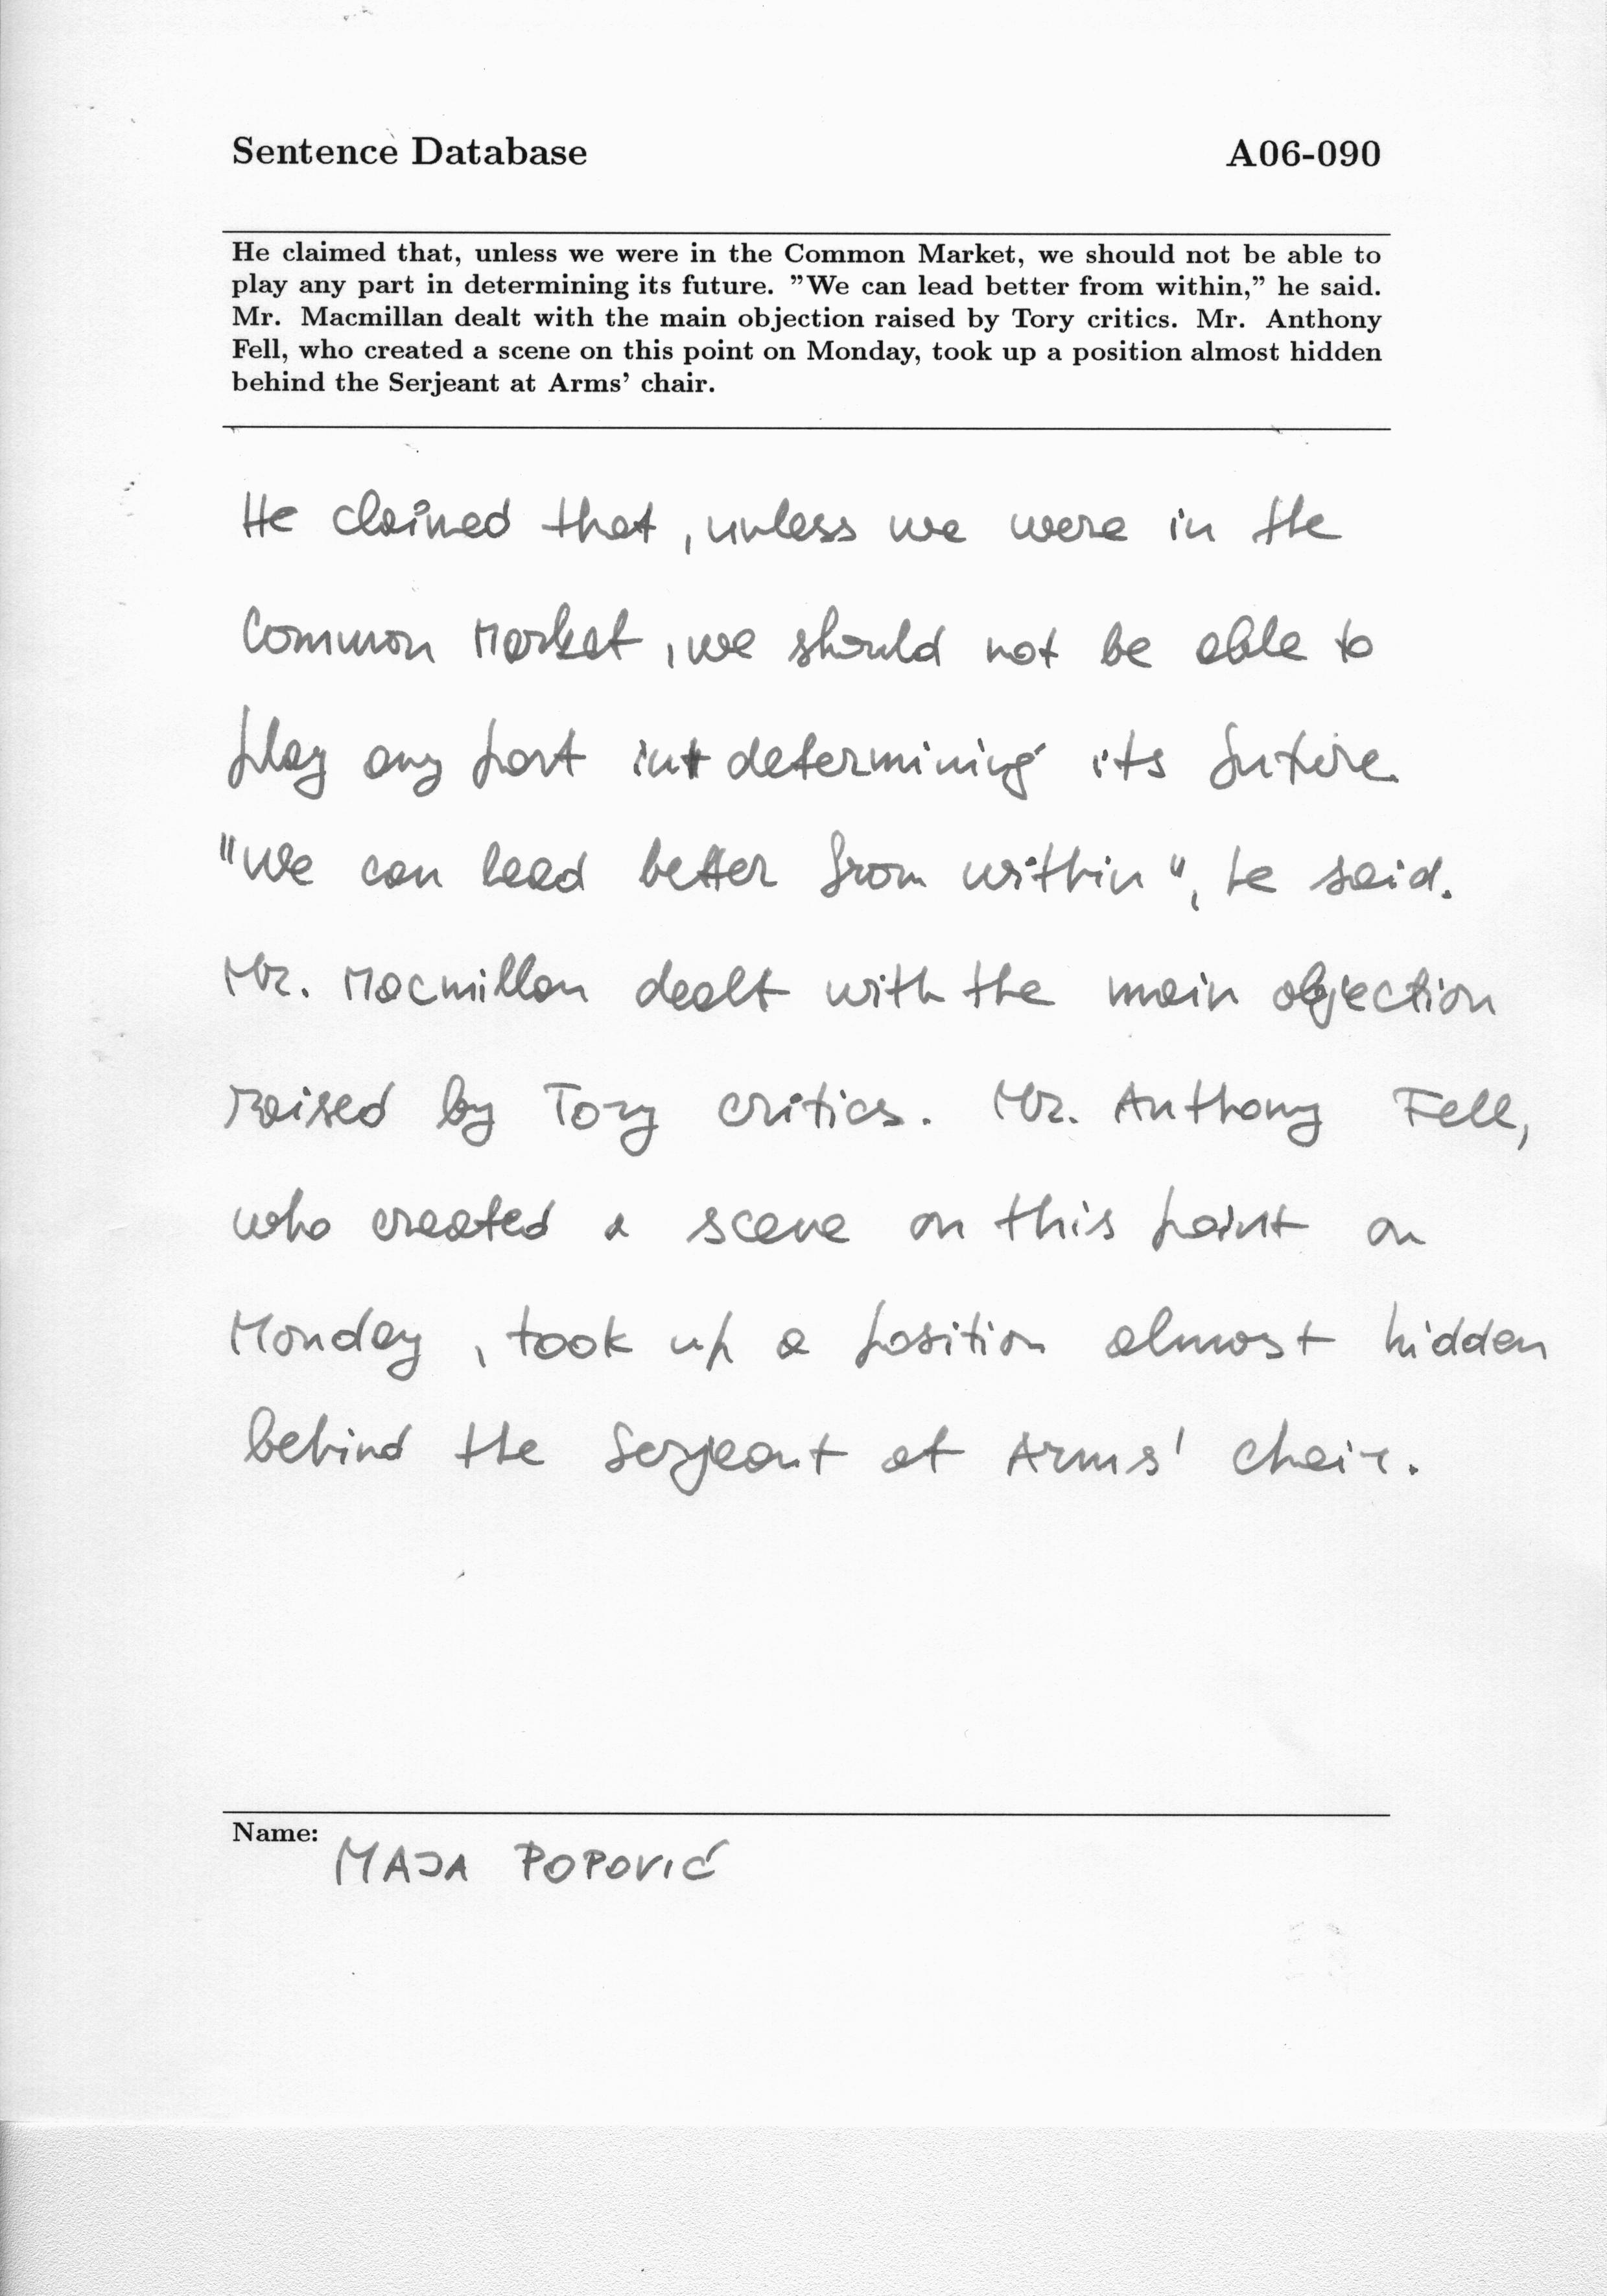 Sentence Database A06-090
He claimed that, unless we were in the Common Market, we should not be able to
play any part in determining its future. ”We can lead better from within,” he said.
Mr. Macmillan dealt with the main objection raised by Tory critics. Mr. Anthony
Fell, who created a scene on this point on Monday, took up a position almost hidden
behind the Serjeant at Arms’ chair.
He claimed that, unless we were in the
Common Market, we should not be able to
play any part in determining its future.
"We can lead better from within", he said.
Mr. Macmillan dealt with the main objection
raised by Tory critics. Mr. Anthony Fell,
who created a scene on this point on
Monday, took up a position almost hidden
behind the Serjeant at Arms' chair.
Name: MAJA POPOVIĆ